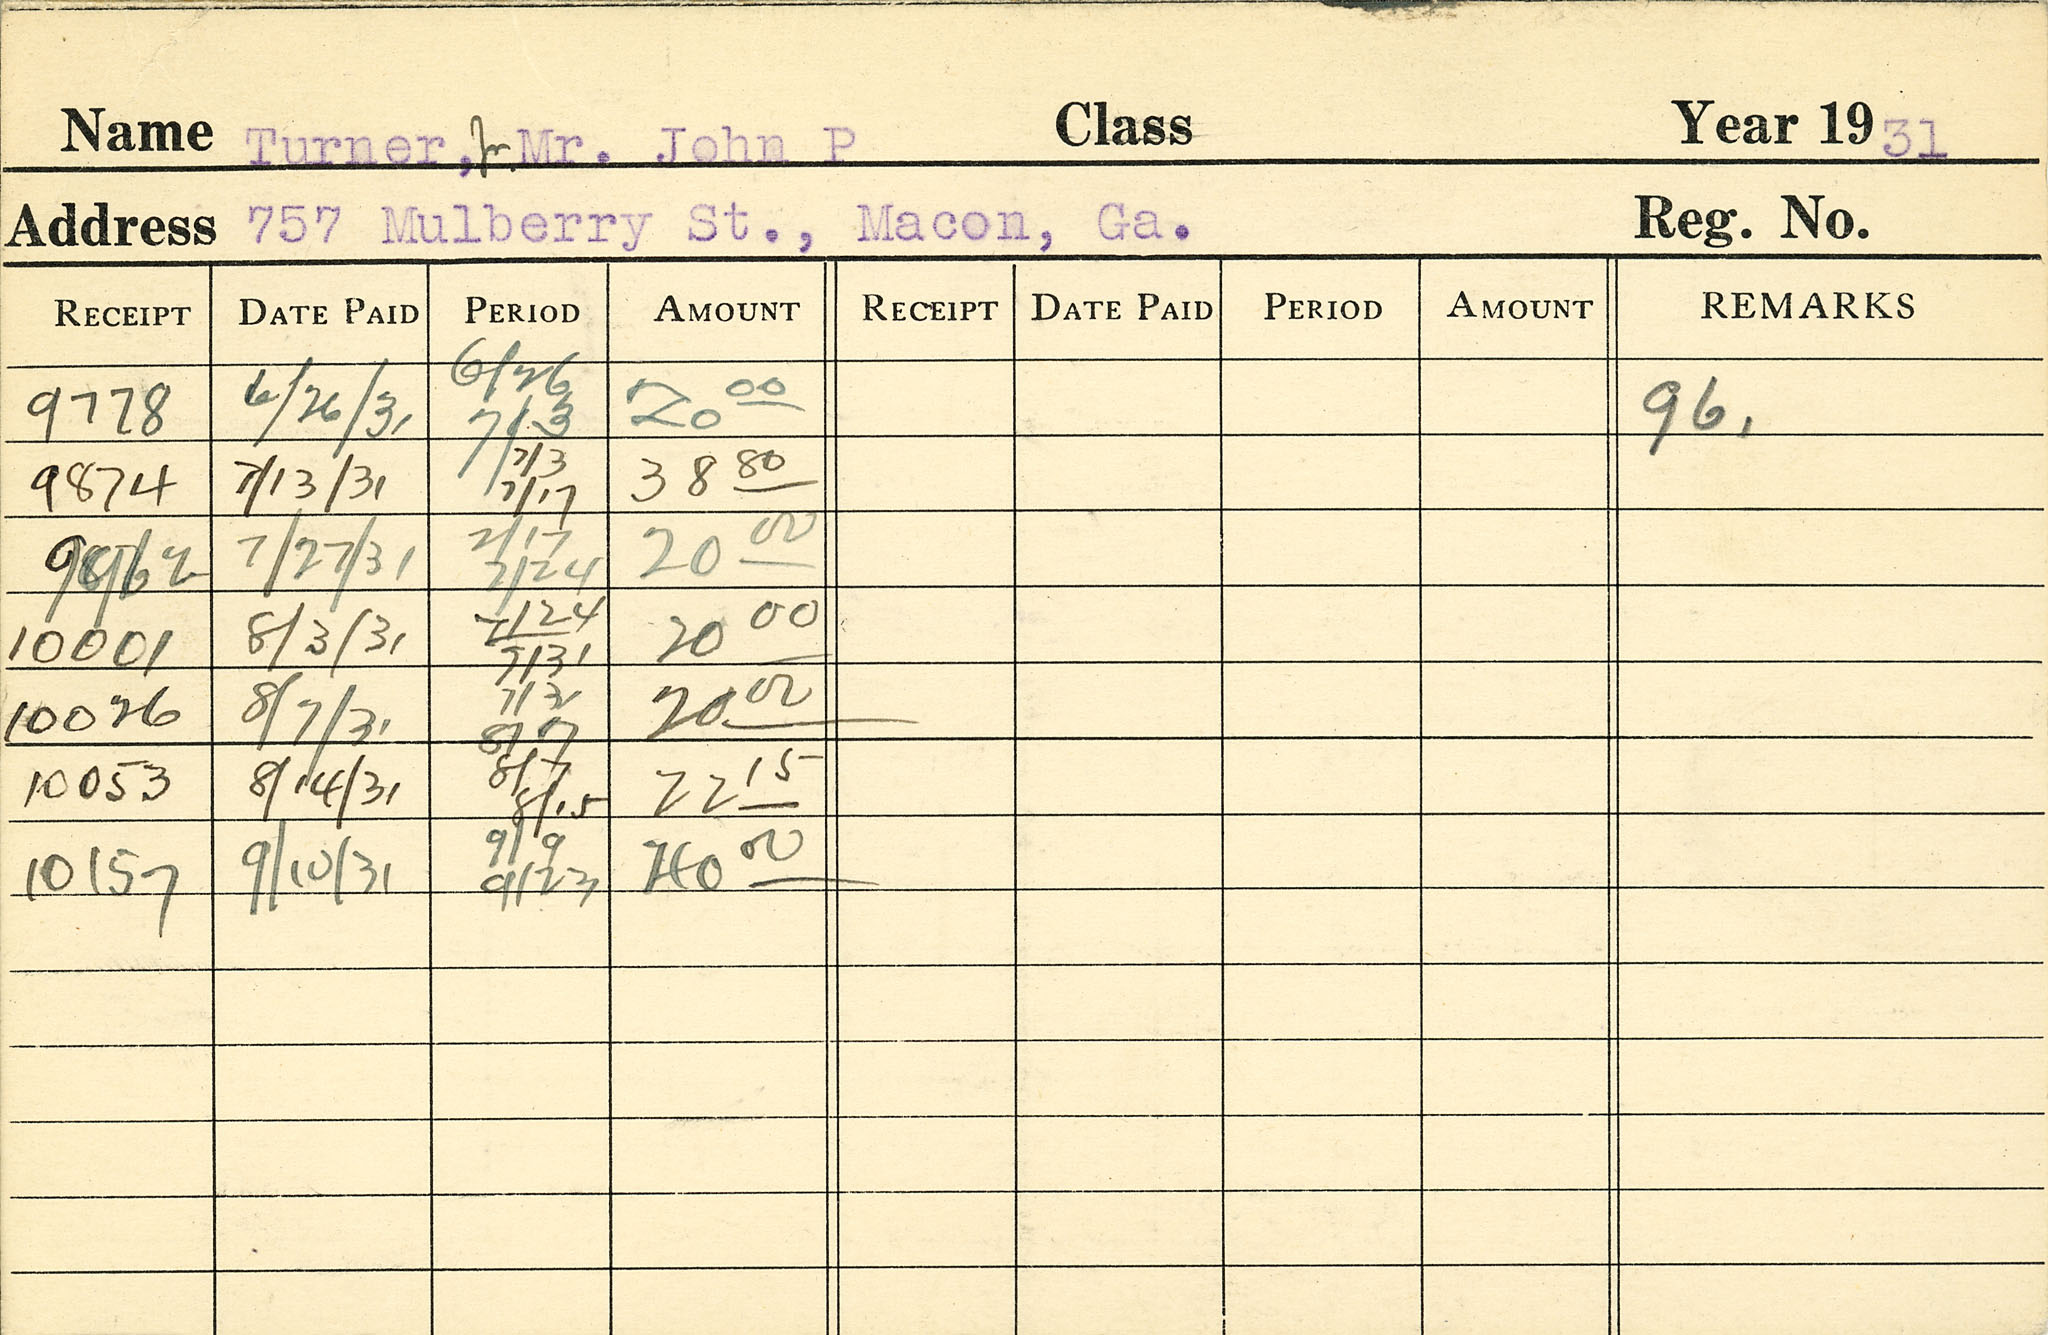 Name Turner, Jr. Mr. John P Class Year 1931
Address 757 Mulberry St., Macon, Ga. Reg. No.
RECEIPT DATE PAID PERIOD AMOUNT RECEIPT DATE PAID PERIOD AMOUNT REMARKS
9778 6/26/31 6/26 7/13 20 00 96.
9874 7/13/31 7/3 7/17 38 80
7/27/31 7/17 7/24 20 00
10001 8/3/31 7/24 7/31 20 00
10026 8/7/31 7/31 8/7 20 00
10053 8/14/31 8/7 8/15 22 15
10157 9/10/31 9/9 9/23 40 00